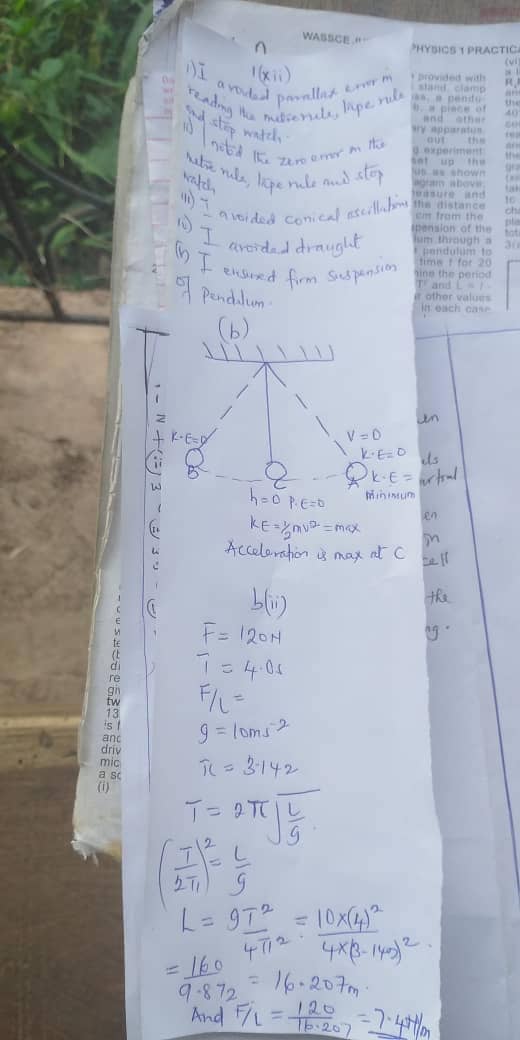 WASSCE
PHYSICS 1 PRACTICA
1(xii)
i) I avoided parallax error in
reading the metre rule, tape rule
and stop watch.
ii) I noted the zero error on the
metre rule, tape rule and stop
watch
iii) I avoided conical oscillations
iv) I avoided draught
(v) I ensured firm suspension
of Pendulum.
(b)
K.E=0
B
C
V=0
K.E=0
A K.E=
minimum
h=0 P.E=0
KE=½mv²=max
Acceleration is max at C
b(ii)
F= 120N
T = 4.0s
F/L =
g = 10ms⁻²
π = 3.142
T = 2π√(L/g)
(T/2π)² = L/g
L = gT²/4π² = 10×(4)²/4×(3.142)².
= 160/9.872 = 16.207m.
And F/L = 120/16.207 =
provided with
stand, clamp
a pendu-
a piece of
and other
ry apparatus.
out the
experiment:
set up the
us as shown
agram above;
measure and
the distance
cm from the
pension of the
lum through a
pendulum to
time t for 20
mine the period
T² and L
other values
in each case
the
cell
driv
mic
a so
(i)